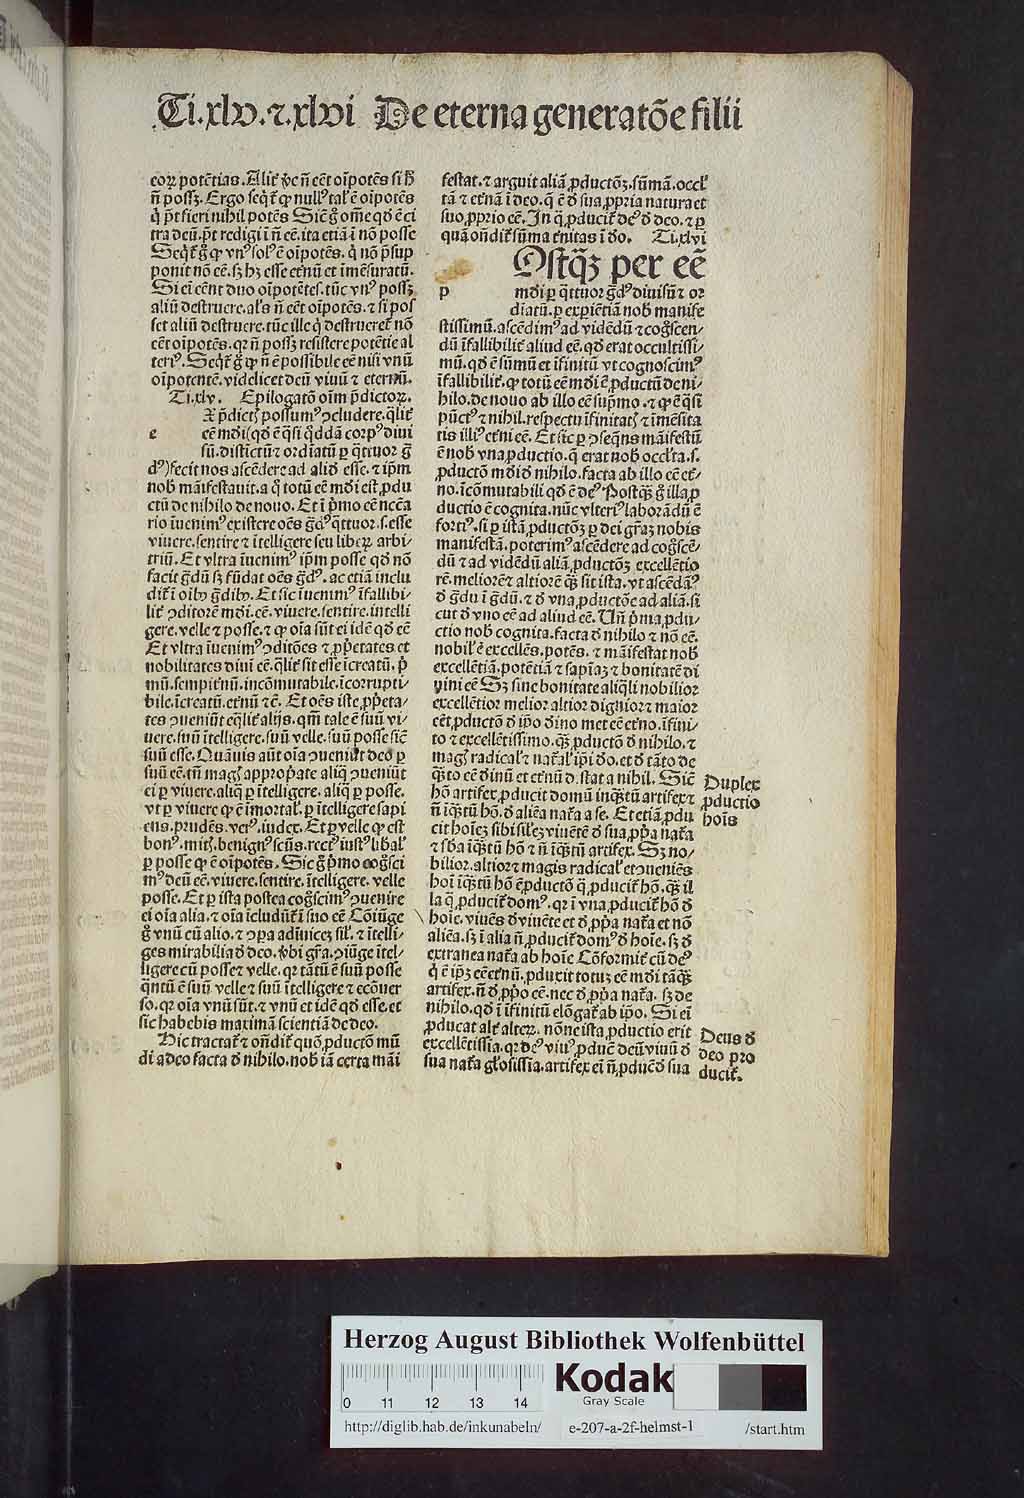 Ti.xlv.⁊.xlvi De eterna generatõe filii
eoꝝ potẽtias. Alit̃ ꝟe ñ eẽt oĩpotẽs si h̃
ñ possꝫ. Ergo seq̃t̃ ꝙ nullꝰ tal̓ ẽ oĩpotẽs
q̃ p̃t fieri nihil potẽs Siẽ g̊ om̃e qd̓ ẽ ci
tra deũ. p̃t redigi ĩ ñ eẽ. ita etiã ĩ nõ posse
Seq̃t̃ g̊ ꝙ vnꝰ solꝰ ẽ oĩpotẽs. q̃ nõ p̃sup
ponit nõ eẽ. sꝫ hꝫ esse et̃nũ et ĩmẽsuratũ.
Si eĩ eẽnt duo oĩpotẽtes. tũc vnꝰ possꝫ
aliũ destruere. al̓s ñ eẽt oĩpotẽs. ⁊ si pos
set aliũ destruere. tũc ille q̃ destrueret̃ nõ
eẽt oĩpotẽs. qꝛ ñ possꝫ resistere potẽtie al
teriꝰ. Seq̃t̃ g̊ ꝙ ñ ẽ possibile eẽ nisi vnũ
oĩpotentẽ. videlicet deũ viuũ ⁊ eternũ.
Ti.xlv. Epilogatõ oĩm p̃dictoꝝ.
X p̃dictꝭ possumꝰ ꝯcludere. q̃lit̃
e eẽ mũdi (qd̓ ẽ q̃si q̃ddã corpꝰ diui
sũ. distictũ ⁊ ordiatũ ꝑ q̃ttuor g̃
dꝰ) fecit nos ascẽdere ad aliđ esse. ⁊ ip̃m
nob̓ mãifestauit. a q̃ totũ eẽ mũdi est ꝓdu
ctũ de nihilo de nouo. Et ĩ p̃mo eẽ ncc̃a
rio ĩuenimꝰ existere oẽs g̃dꝰ q̃ttuor. s. esse
viuere. sentire ⁊ ĩtelligere seu liberꝝ arbi-
triũ. Et vltra ĩuenimꝰ ip̃m posse qd̓ nõ
facit g̃dũ sꝫ fũdat oẽs g̃dꝰ. ac etiã inclu
dit̃ ĩ oĩbꝰ g̃dibꝰ. Et sic ĩuenimꝰ ĩfallibi-
lit̃ ꝯditorẽ mũdi. eẽ. viuere. sentire. intelli
gere. velle ⁊ posse. ⁊ ꝙ oĩa sũt ei idẽ qd̓ eẽ
Et vltra ĩuenimꝰ ꝯditões ⁊ ꝓp̃etates et
nobilitates diui eẽ. q̃lit̃ sit esse ĩcreatũ. p̃
mũ. sempit̃nũ. incõmutabile. ĩcorrupti-
bile. ĩcreatũ. et̃nũ ⁊ ẽ. Et oẽs iste ꝓp̃eta-
tes ꝯueniũt eq̃lit̃ alijs. qm̃ tale ẽ suũ vi-
uere. suũ ĩtelligere. suũ velle. suũ posse sicẽ
suũ esse. Quãuis aũt oĩa ꝯueniũt deo ꝑ
suũ eẽ. tñ magꝭ appropriate aliq̃ ꝯueniũt
ei ꝑ viuere. aliq̃ ꝑ ĩtelligere. aliq̃ ꝑ posse.
vt ꝑ viuere ꝙ ẽ imortal̓. ꝑ ĩtelligere sapi
ens. prudẽs. verꝰ. iudex. Et ꝑ velle ꝙ est
bonꝰ. mitꝭ. benignꝰ scũs. rectꝰ iustꝰ libal̓
ꝑ posse ꝙ ẽ oĩpotẽs. Sic g̊ p̃mo cog̊sci
mꝰ deũ eẽ. viuere. sentire. ĩtelligere. velle
posse. Et ꝑ ista postea cog̊scimꝰ ꝯuenire
ei oĩa alia. ⁊ oĩa ĩcludũt̃ ĩ suo eẽ Cõiũge
g̊ vnũ cũ alio. ⁊ ꝯpa adĩuicẽ sil̓. ⁊ ĩtelli-
ges mirabilia đ deo. ꝟbi gr̃a. ꝯiũge ĩtel-
ligere cũ posse ⁊ velle. qꝛ tãtũ ẽ suũ posse
q̃ntũ ẽ suũ velle ⁊ suũ ĩtelligere ⁊ ecõuer
so. qꝛ oĩa vnũ sũt. ⁊ vnũ et idẽ qd̓ esse. et
sic habebis maximã scientiã de deo.
Hic tractat̃ ⁊ oñdit̃ quõ ꝓductõ mũ
di a deo facta đ nihilo. nob̓ iã certa mãi
festat. ⁊ arguit aliã ꝓductõꝫ. sũmã. occl̓
tã ⁊ et̃nã ĩ deo. q̃ ẽ đ sua ꝓpria natura et
suo ꝓprio eẽ. In q̃ ꝓducit̃ deꝰ đ deo. ⁊ ꝑ
quã oñdit̃ sũma t̃nitas ĩ đo. Ti.xlvi
Ostq̃ꝫ per eẽ
p mũdi ꝑ q̃ttuor g̃dꝰ diuisũ ⁊ or
diatũ. ꝑ expiẽtiã nob̓ manife
stissimũ. ascẽdimꝰ ad vidẽdũ ⁊ cog̊scen-
dũ ĩfallibilit̃ aliud eẽ. qd̓ erat occultissi-
mũ. qd̓ ẽ sũmũ et ĩfinitũ vt cognoscimꝰ
ĩfallibilit̃. ꝙ totũ eẽ mũdi ẽ ꝓductũ de ni-
hilo. de nouo ab illo eẽ sup̃mo. ⁊ ꝙ ẽ q̃si
pũctꝰ ⁊ nihil. respectu ĩfinitatꝭ ⁊ ĩmẽsita
tis illiꝰ et̃ni eẽ. Et sic ꝑ ꝯseq̃ns mãifestũ
ẽ nob̓ vna ꝓductio. q̃ erat nob̓ occl̓ta. s.
ꝓductõ mũdi đ nihilo. facta ab illo eẽ et̃-
no. ĩcõmutabili qd̓ ẽ deꝰ Postq̃ꝫ g̊ illa ꝓ
ductio ẽ cognita. nũc vlteriꝰ laborãdũ ẽ
fortiꝰ. si ꝑ istã ꝓductõꝫ ꝑ dei gr̃aꝫ nobis
manifestã. poterimꝰ ascẽdere ad cog̊scẽ-
dũ ⁊ ad vidẽdũ aliã ꝓductõꝫ excellẽtio
rẽ. meliorẽ ⁊ altiorẽ q̃ꝫ sit ista. vt ascẽdãꝰ
đ g̃du ĩ g̃dũ. ⁊ đ vna ꝓductõe ad aliã. si
cut đ vno eẽ ad aliud eẽ. Uñ p̃ma ꝓdu-
ctio nob̓ cognita. facta đ nihilo ⁊ nõ eẽ.
nobil̓ ẽ excellẽs. potẽs. ⁊ mãifestat nob̓
excellẽtiã. potẽtiã ⁊ sapiaꝫ ⁊ bonitatẽ di
uini eẽ Sꝫ sine bonitate aliq̃li nobilior
excellẽtior melior altior dignior ⁊ maior
eẽt ꝓductõ đ ip̃o đino met eẽ et̃no. ĩfini-
to ⁊ excellẽtissimo. q̃ꝫ ꝓductõ đ nihilo. ⁊
magꝭ radical̓ ⁊ nat̃al̓ ip̃i đo. et đ tãto de
q̃ꝫto eẽ đinũ et et̃nũ distat a nihil. Sicẽ
hõ artifex ꝓducit domũ inq̃ꝫtũ artifex ⁊
ñ ĩq̃ꝫtũ hõ. đ aliẽa nat̃a a se. Et etiã ꝓdu
cit hoĩeꝫ sibi sil̓eꝫ viuẽtẽ đ sua ꝓp̃a nat̃a
⁊ sb̃a ĩq̃ꝫtũ hõ ⁊ ñ ĩq̃ꝫtũ artifex. Sꝫ no-
bilior. altior ⁊ magis radical̓ et ꝯueniẽs
hoĩ ĩq̃ꝫtũ hõ ẽ ꝓductõ q̃ ꝓducit̃ hõ. q̃ꝫ il
la q̃ ꝓducit̃ domꝰ. qꝛ ĩ vna ꝓducit̃ hõ đ
hoĩe. viuẽs đ viuẽte et đ ꝓp̃a nat̃a et nõ
aliẽa. sꝫ ĩ alia ñ ꝓducit̃ domꝰ đ hoĩe. sꝫ đ
extranea nat̃a ab hoĩe Cõformit̃ cũ deꝰ
q̃ ẽ ip̃ꝫ eẽ et̃nũ. ꝓduxit totuꝫ eẽ mũdi tãq̃ꝫ
artifex. ñ đ ꝓp̃o eẽ. nec đ ꝓp̃a nat̃a. sꝫ de
nihilo. qd̓ ĩ ĩfinitũ elõgat̃ ab ip̃o. Si eĩ
ꝓducat alt̃ alterꝝ. nõne ista ꝓductio erit
excellẽtissia. qꝛ deꝰ viuꝰ ꝓducẽ deũ viuũ đ
sua nat̃a gl̓osissia. artifex eĩ ñ ꝓducẽ đ sua
Duplex
ꝓductio
hoĩs
Deus đ
deo pro
ducit̃.
Herzog August Bibliothek Wolfenbüttel
Kodak
Gray Scale
0 11 12 13 14
http://diglib.hab.de/inkunabeln/ e-207-a-2f-helmst-1 /start.htm